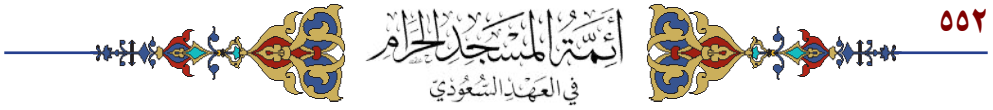 ٥٥٢
أَئِمَّةُ المَسْجِدِ الحَرَامِ
في العَهْدِ السُّعُودِيّ